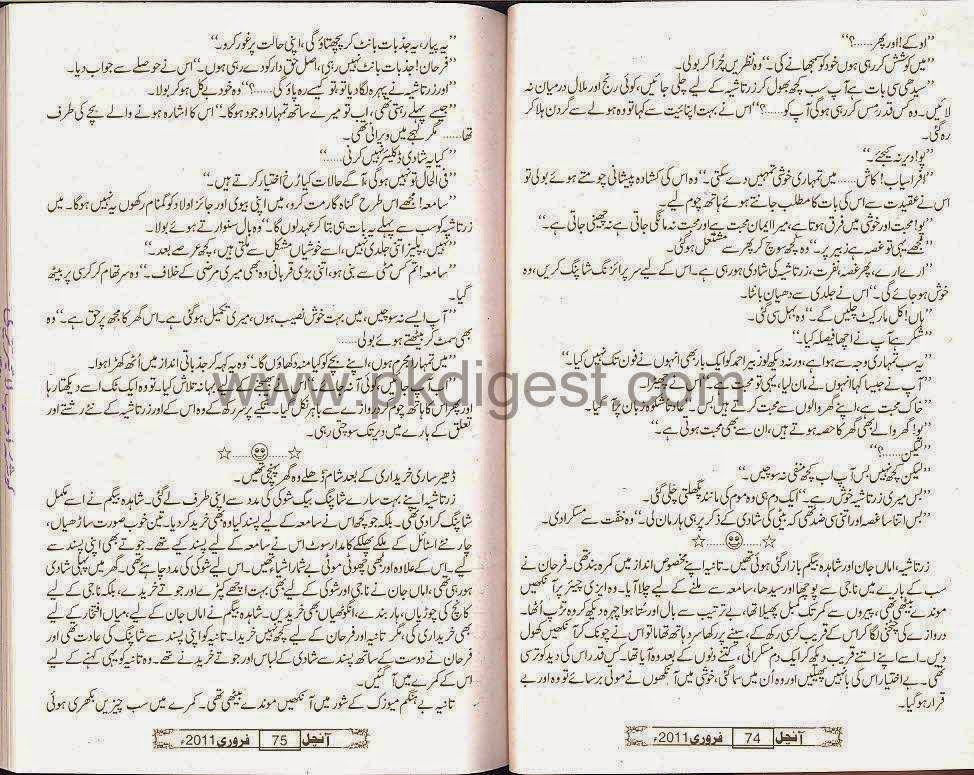 ”اوکے! اور پھر......؟“
”میں کوشش کر رہی ہوں خود کو سمجھانے کی۔“ وہ نظریں چرا کر بولی۔
”سیدھی سی بات ہے آپ سب کچھ بھول کر زرتاشیہ کے لیے چلی جائیں، کوئی رنج اور ملال درمیان نہ
لائیں۔ وہ کس قدر مس کر رہی ہوگی آپ کو......؟“ اس نے بہت اپنائیت سے کہا تو وہ ہولے سے گردن ہلا کر
رہ گئی۔
”پو! دیر نہ کیجئے۔“
”افراسیاب! کاش...... میں تمہاری خوشی تمہیں دے سکتی۔“ وہ اس کی کشادہ پیشانی چومتے ہوئے بولی تو
اس نے عقیدت سے اس کی بات کا مطلب جانتے ہوئے ہاتھ چوم لیے۔
”پو! محبت اور خوشی میں فرق ہوتا ہے، میرا ایمان محبت ہے اور محبت نہ مانگی جاتی ہے نہ چھینی جاتی ہے۔“
”مجھے یہی تو غصہ ہے زبیر پر۔“ وہ کچھ سوچ کر پھر سے مشتعل ہوگئی۔
”ارے ارے، پھر غصہ، نفرت، زرتاشیہ کی شادی ہو رہی ہے۔ اس کے لیے سرپرائزنگ شاپنگ کریں، وہ
خوش ہو جائے گی۔“ اس نے جلدی سے دھیان بانٹا۔
”ہاں! کل مارکیٹ چلیں گے۔“ وہ بہل سی گئی۔
”شکر ہے آپ نے اچھا فیصلہ کیا۔“
”یہ سب تمہاری وجہ سے ہوا ہے، ورنہ دیکھ لو زبیر احمد کو ایک بار بھی انہوں نے فون تک نہیں کیا۔“
”آپ نے جیسا کہا انہوں نے مان لیا، یہی تو محبت ہے۔“ اس نے چھیڑا۔
”خاک محبت ہے، اپنے گھر والوں سے محبت کرتے ہیں بس۔“ شکوہ زبان پر آ گیا۔
”پو! گھر والے بھی گھر کا حصہ ہوتے ہیں، ان سے بھی محبت ہوتی ہے۔“
”لیکن......؟“
”لیکن کچھ نہیں بس آپ اب کچھ منفی نہ سوچیں۔“
”بس میری زرتاشیہ خوش رہے۔“ ایک دم ہی وہ موم کی مانند پگھلتی چلی گئی۔
”بس اتنا سا غصہ اور اتنی سی ضد تھی کہ بیٹی کی شادی کے ذکر پر ہی ہار مان لی۔“ وہ خفت سے مسکرا دی۔
زرتاشیہ، اماں جان اور شاہدہ بیگم بازار گئی ہوئی تھیں۔ تانیہ اپنے مخصوص انداز میں کمرہ بند تھی۔ فرحان نے
سب کے بارے میں ناجی سے پوچھا اور سیدھا، سامعہ سے ملنے کے لیے چلا آیا۔ وہ ایزی چیئر پر آنکھیں
موندے بیٹھی تھی، پیروں سے کمر تک کمبل پھیلا تھا، بے ترتیب سے بال اور ستا ہوا چہرہ دیکھ کر وہ تڑپ اٹھا۔
دروازے کی چٹخنی لگا کر اس کے قریب کرسی رکھ کے، سینے پر رکھا سرد ہاتھ تھاما تو اس نے چونک کر آنکھیں کھول
دیں۔ اسے اپنے اتنے قریب دیکھ کر ایک دم مسکرائی، کتنے دنوں کے بعد وہ آیا تھا۔ کس قدر اس کی دید کو ترسی
تھی۔ بے اختیار اس کی بانہیں پھیلیں اور وہ ان میں سما گئی، خوشی میں آنکھوں نے موتی برسائے تو وہ اور بے
قرار ہوگیا۔
آنچل 74 فروری 2011ء
”یہ پیار، یہ جذبات بانٹ کر پچھتاؤ گی، اپنی حالت پر غور کرو۔“
”فرحان! جذبات بانٹ نہیں رہی، اصل حق دار کو دے رہی ہوں۔“ اس نے حوصلے سے جواب دیا۔
”اور زرتاشیہ نے پہرہ لگا دیا تو، تو کیسے رہ پاؤ گی......؟“ وہ خود بے کل ہو کر بولا۔
”جیسے پہلے رہتی تھی، اب تو میرے ساتھ تمہارا وجود ہوگا۔“ اس کا اشارہ ہونے والے بچے کی طرف
تھا...... مگر لہجے میں ویرانی تھی۔
”کیا یہ شادی ڈکلیئر نہیں کرنی......“
”فی الحال تو نہیں ہوگی، آگے حالات کیا رخ اختیار کرتے ہیں۔“
”سامعہ! مجھے اس طرح گناہ گار مت کرو، میں اپنی بیوی اور جائز اولاد کو گمنام رکھوں یہ نہیں ہوگا۔ میں
زرتاشیہ کو سب سے پہلے یہ بات ہی بتا کر عہد لوں گا۔“ وہ بال سنوارتے ہوئے بولا۔
”نہیں، پلیز! اتنی جلدی نہیں، اسے خوشیاں مشکل سے ملتی ہیں، کچھ عرصے بعد۔“
”سامعہ! تم کس مٹی سے بنی ہو، اتنی بڑی قربانی وہ بھی میری مرضی کے خلاف۔“ وہ سر تھام کر کرسی پر بیٹھ
گیا۔
”آپ ایسے نہ سوچیں، میں بہت خوش نصیب ہوں، میری تکمیل ہوگئی ہے۔ اس گھر کا مجھ پر حق ہے۔“ وہ
بھی سمٹ کر بیٹھتے ہوئے بولی......
”میں تمہارا مجرم ہوں، اپنے بچے کو کیا منہ دکھاؤں گا۔“ وہ یہ کہہ کر جذباتی انداز میں اٹھ کھڑا ہوا۔
تلاش کیا۔ تو وہ ایک ٹک اسے دیکھتا رہا
اور پھر اس کا ہاتھ چوم کر دروازے سے باہر نکل گیا۔ تکیے پر سر رکھ کے وہ اس کے اور زرتاشیہ کے نئے رشتے اور
تعلق کے بارے میں دیر تک سوچتی رہی۔
ڈھیر ساری خریداری کے بعد شام ڈھلے وہ گھر پہنچی تھیں۔
زرتاشیہ اپنے بہت سارے شاپنگ بیگ شوکی کی مدد سے اپنی طرف لے گئی۔ شاہدہ بیگم نے اسے مکمل
شاپنگ کرا دی تھی۔ بلکہ جو کچھ اس نے سامعہ کے لیے پسند کیا وہ بھی خرید کر دیا۔ تین خوب صورت ساڑھیاں،
چار نئے اسٹائل کے ہلکے پھلکے کامدار سوٹ اس نے سامعہ کے لیے پسند کیے تھے۔ جوتے بھی اپنی پسند سے
لیے۔ اس کے علاوہ اور بھی چھوٹی موٹی بے شمار اشیا تھیں۔ اس لیے شوکی کی مدد چاہیے تھی۔ گھر میں پہلی شادی
تھی، اماں جان نے ناجی اور شوکی کے لیے بھی بہت اچھے کپڑے اور جوتے خریدے، بلکہ ناجی کے لیے
کانچ کی چوڑیاں، ہار بندے، انگوٹھیاں بھی خریدیں۔ شاہدہ بیگم نے اماں جان کے لیے، میاں افتخار کے لیے
بھی خریداری کی، مگر تانیہ اور فرحان کے لیے کچھ نہیں خریدا۔ تانیہ کو اپنی پسند سے شاپنگ کی عادت تھی اور
فرحان نے دوست کے ساتھ پسند سے شادی کے لباس اور جوتے خریدنے تھے۔ وہ تانیہ کو یہی کہنے کے لیے
اس کے کمرے میں آ گئیں۔
تانیہ بے ہنگم میوزک کے شور میں آنکھیں موندے بیٹھی تھی۔ کمرے میں سب چیزیں بکھری ہوئی
آنچل 75 فروری 2011ء
www.pkdigest.com